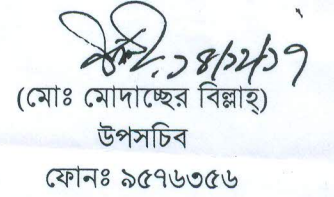 ১৪/১২/১৭
(মোঃ মোদাচ্ছের বিল্লাহ্)
উপসচিব
ফোনঃ ৯৫৭৬৩৫৬